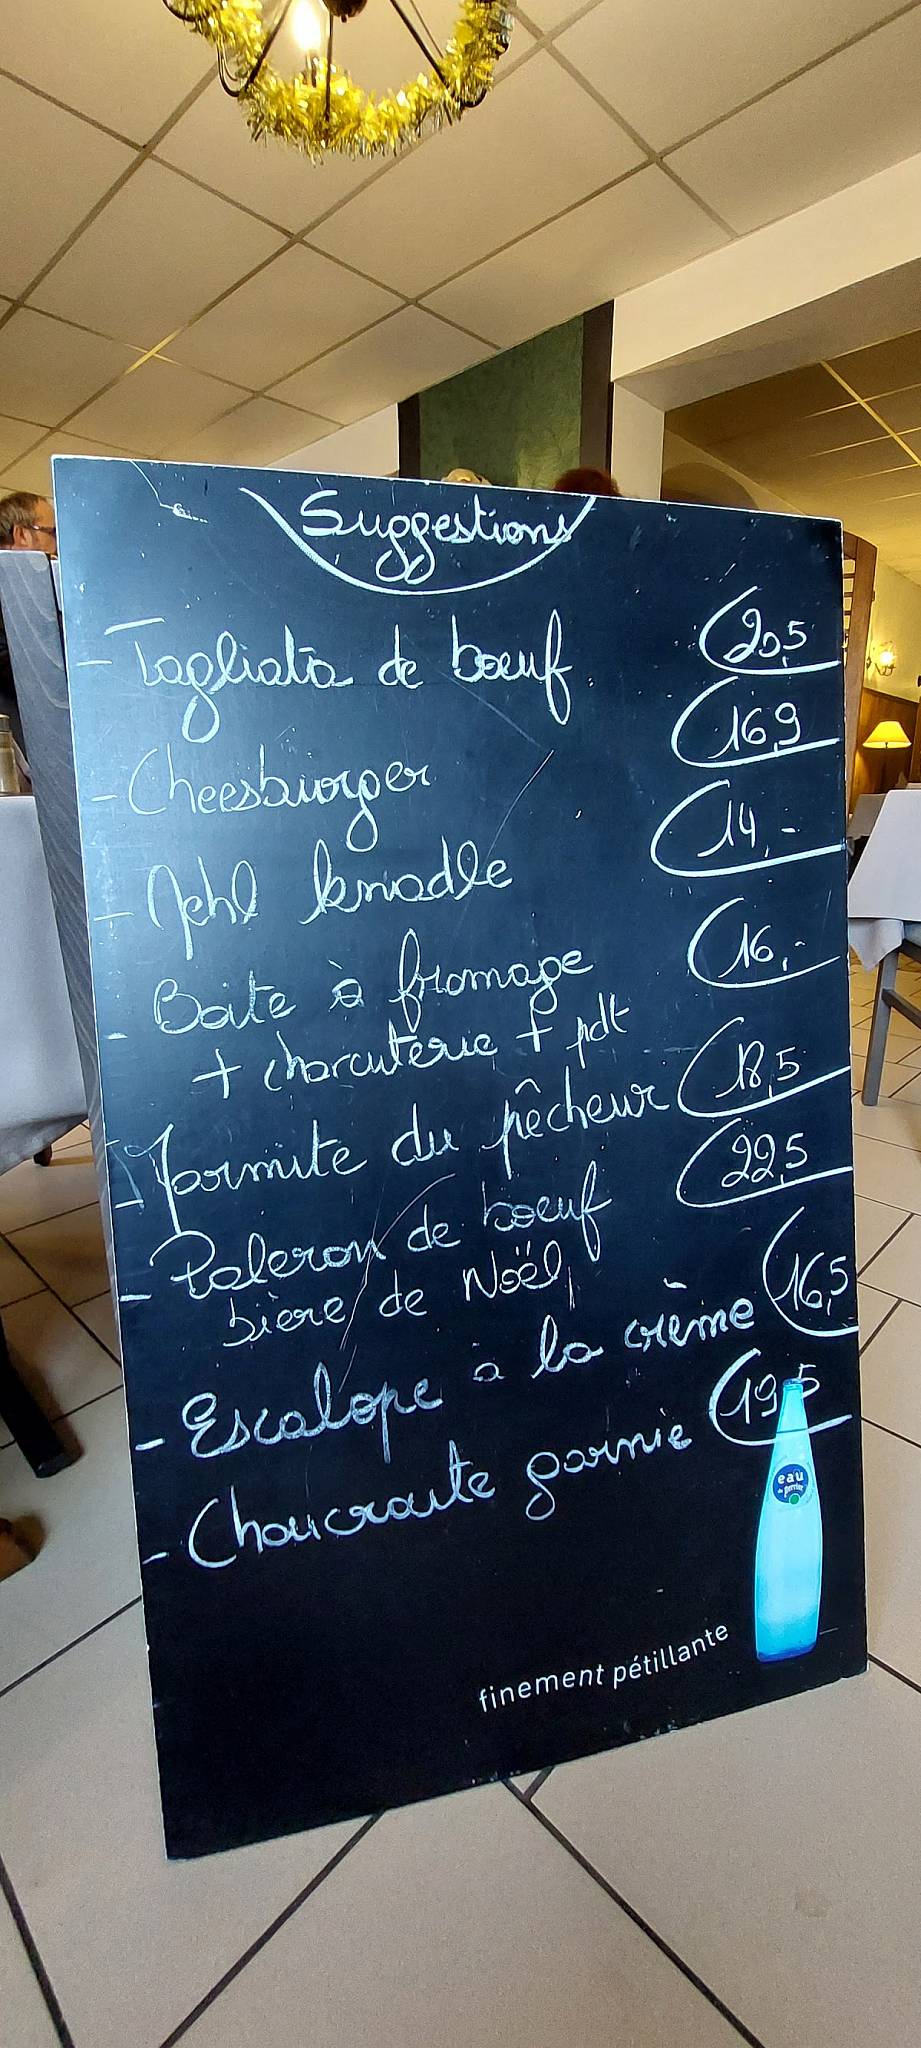 Suggestions
- Tagliata de bœuf 20,5
- Cheesburger 16,9
- Mehl knodle 14,-
- Boite à fromage 16,-
+ charcuterie + pdt
- Marmite du pêcheur 18,5
- Paleron de boeuf 22,5
bière de Noël
- Escalope à la crème 16,5
- Choucroute garnie 19,5
eau de perrier
finement pétillante